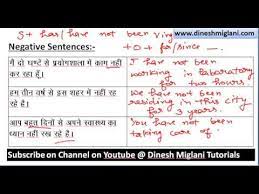 www.dineshmiglani.com
S + has/have not been ving
+ O + for/since
Negative Sentences:-
मैं दो घण्टे से प्रयोगशाला में काम नहीं
कर रहा हूँ।
I have not been
working in laboratory
for two hours.
हम तीन वर्ष से इस शहर में नहीं रह
रहे है।
We have not been
residing in this city
for 3 years.
आप बहुत दिनों से अपने स्वास्थ्य का
ध्यान नहीं रख रहे है।
You have not been
taking care of
Subscribe on Channel on Youtube @ Dinesh Miglani Tutorials